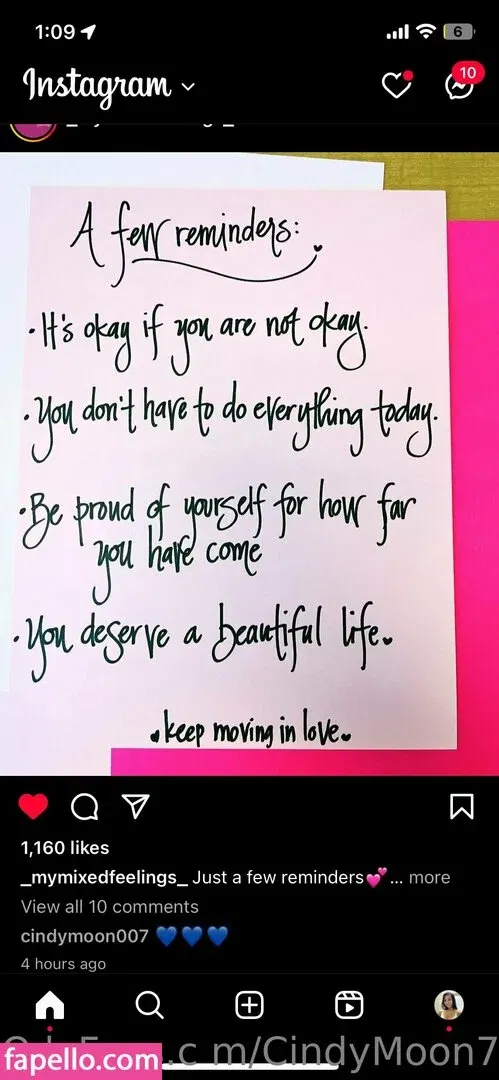 1:09
6
Instagram
10
A few reminders:
· It's okay if you are not okay.
· You don't have to do everything today.
· Be proud of yourself for how far
you have come
· You deserve a beautiful life.
keep moving in love
1,160 likes
_mymixedfeelings_ Just a few reminders💕... more
View all 10 comments
cindymoon007 💙💙💙
4 hours ago
m/CindyMoon7
fapello.com